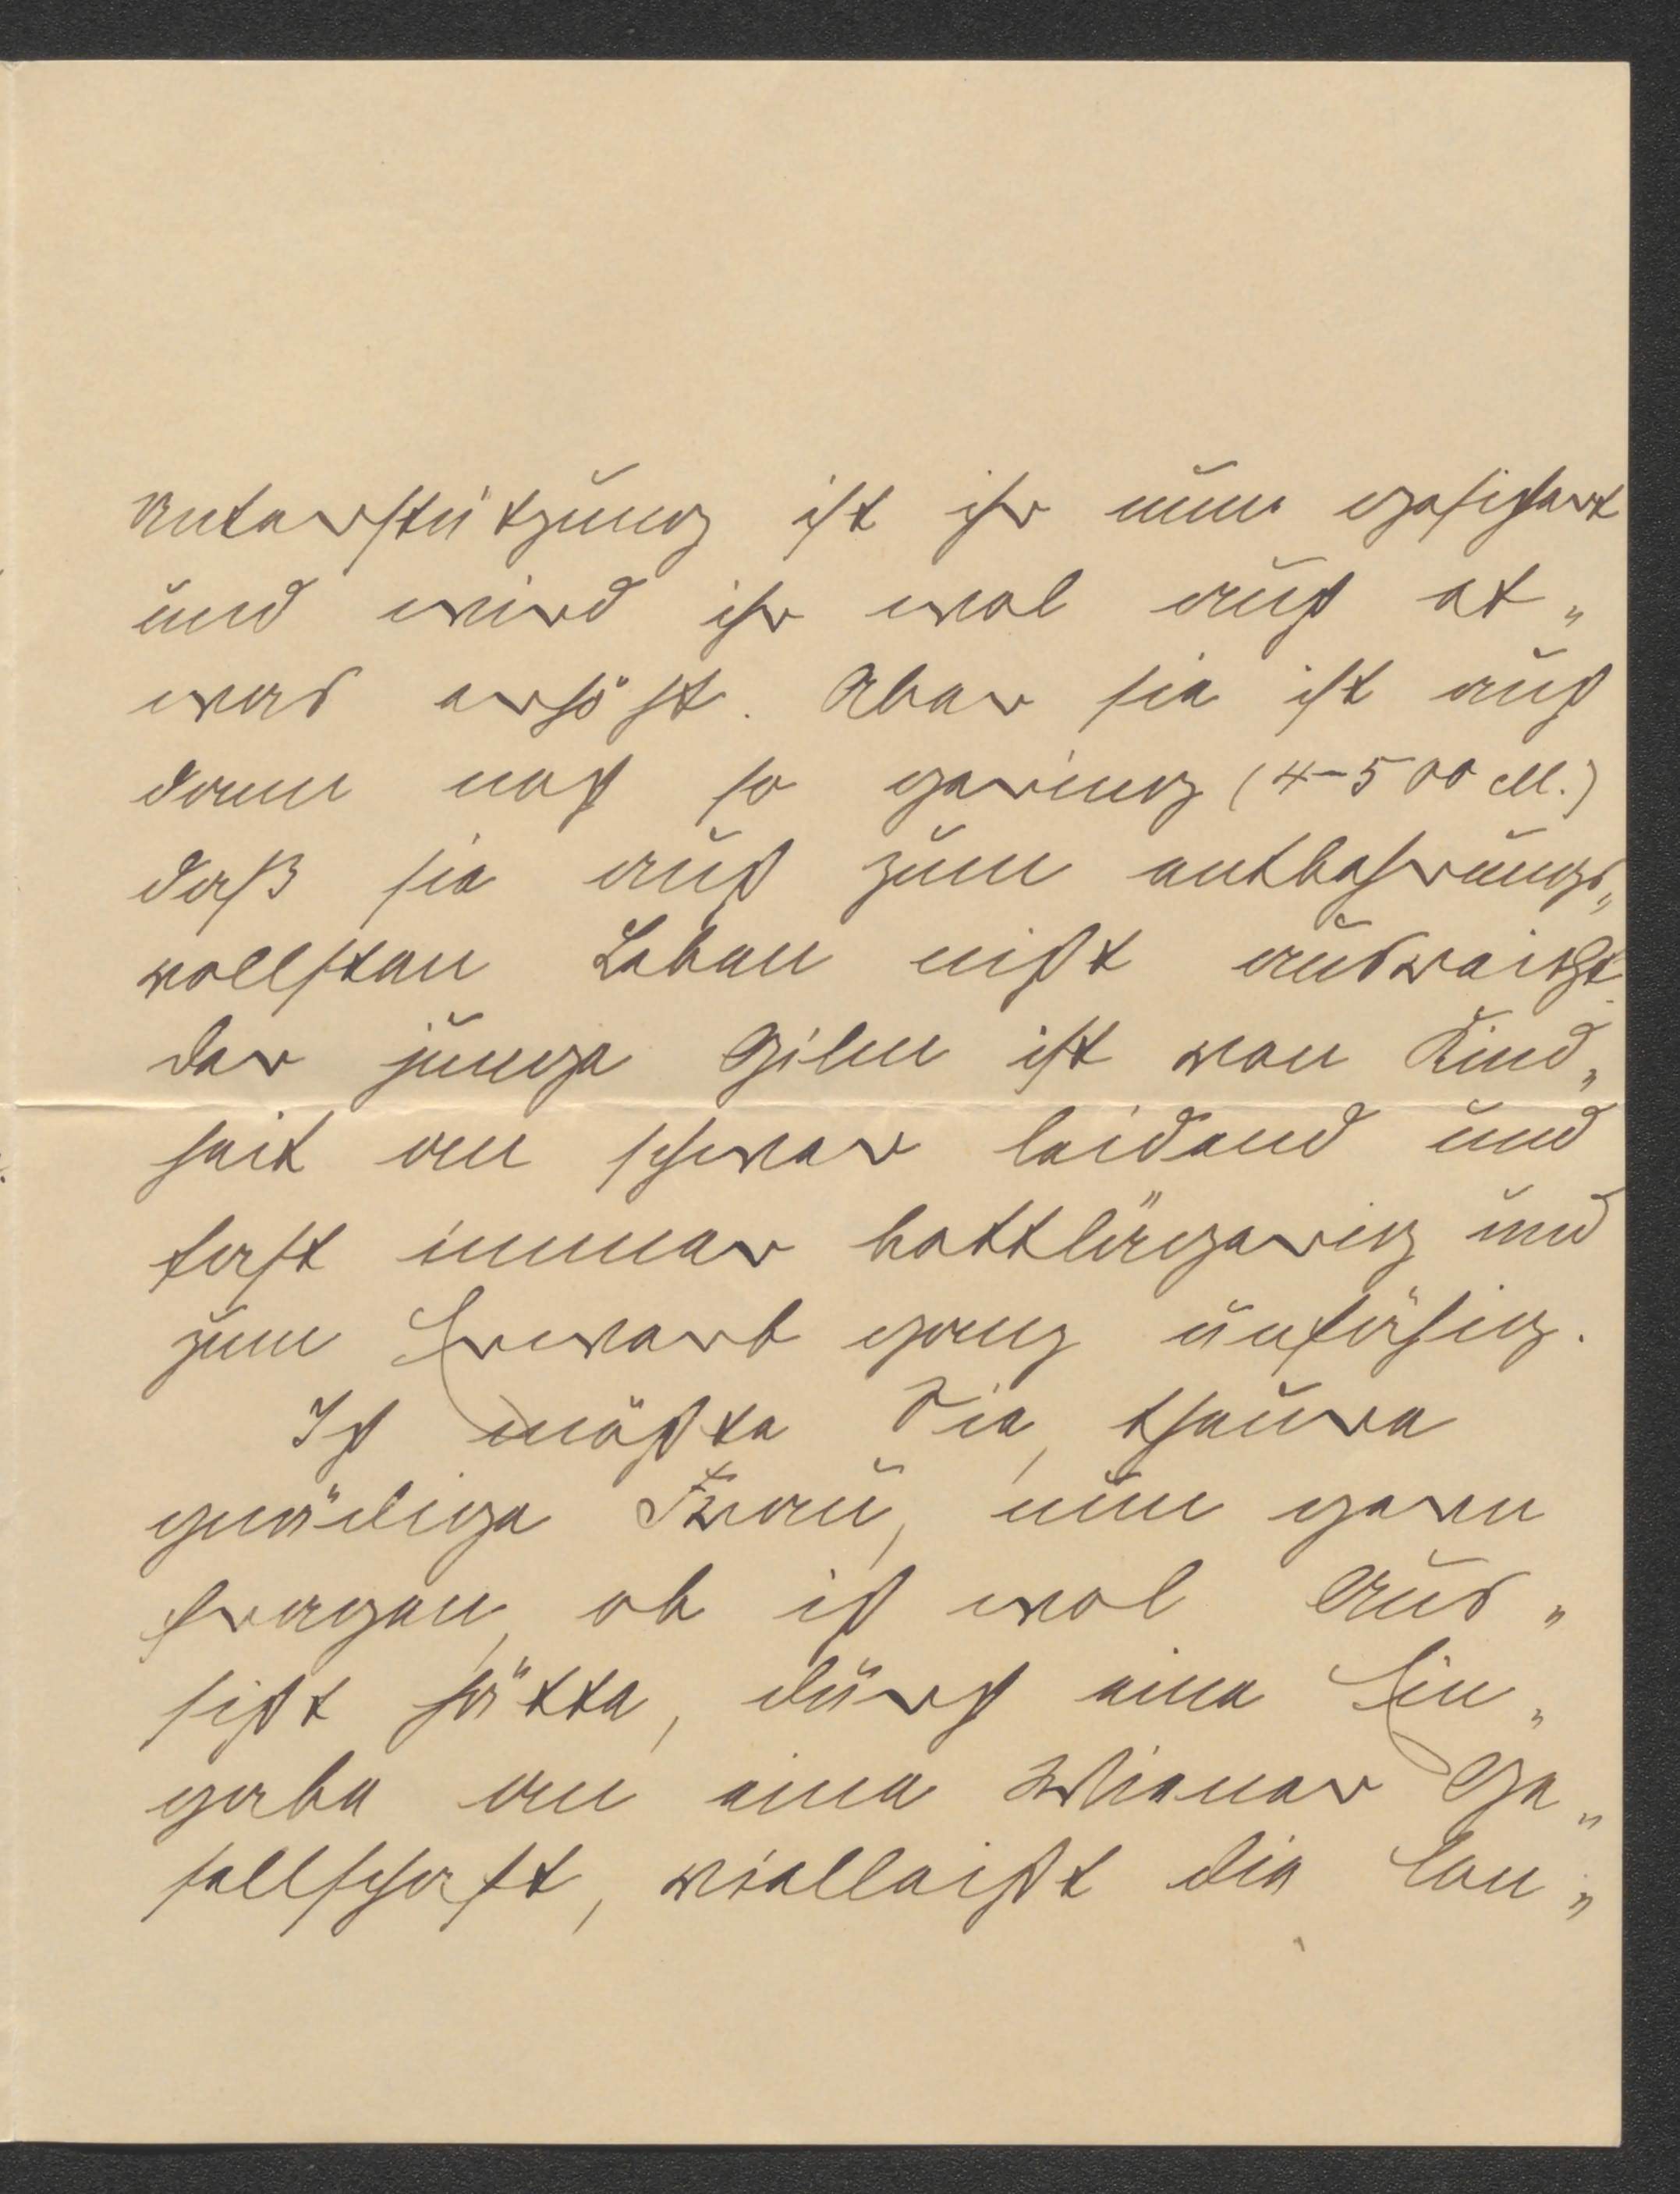 Unterstützung ist ihr nun gesichert
und wird ihr wol auch et„
was erhöht. Aber sie ist auch
dann noch so gering (4–500 M.)
daß sie auch zum entbehrungs„
vollsten Leben nicht ausreicht.
Der junge Gilm ist von Kind„
heit an schwer leidend und
fast immer bettlägerig und
zum Erwerb ganz unfähig.
Ich möchte Sie, theure
gnädige Frau, nun gern
fragen, ob ich wol Aus„
sicht hätte, durch eine Ein„
gabe an eine Wiener Ge„
sellschaft, vielleicht die Con„